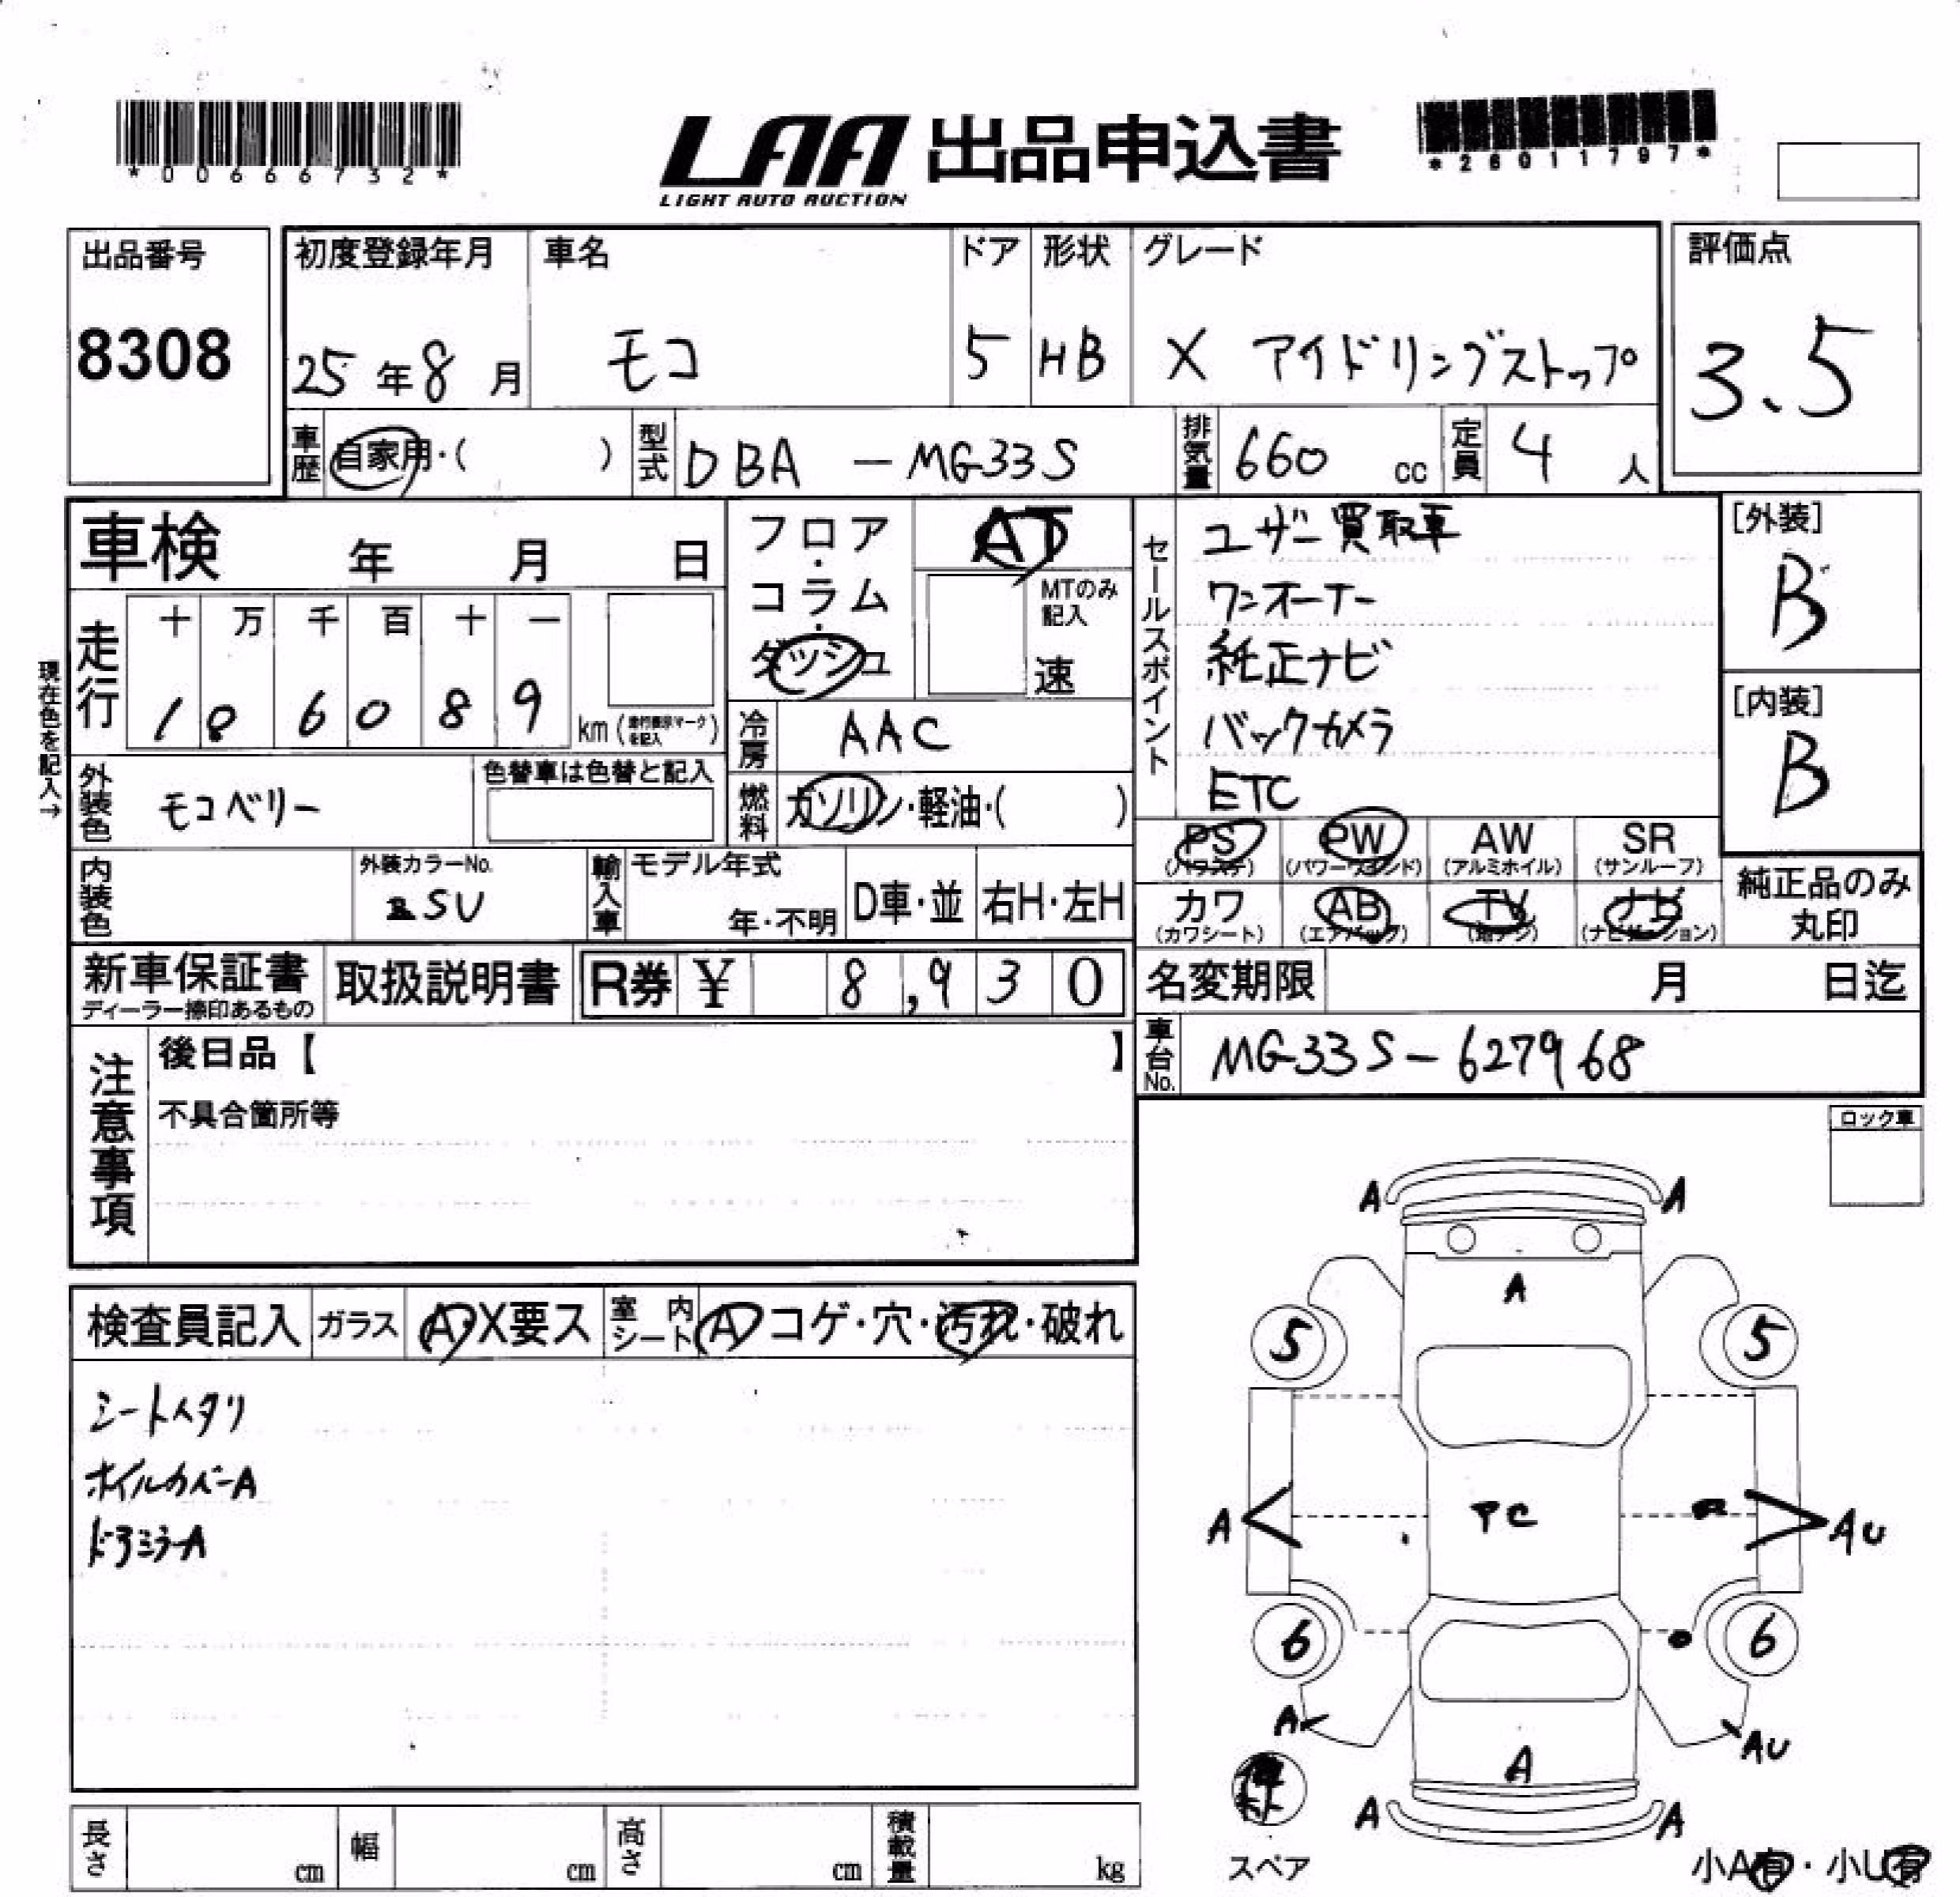 *00666732*
LAA 出品申込書
LIGHT AUTO AUCTION
*26011797*
出品番号
8308
初度登録年月
25年8月
車名
モコ
ドア
5
形状
HB
グレード
X アイドリングストップ
評価点
3.5
車歴
自家用・( )
型式
DBA - MG33S
排気量
660 cc
定員
4 人
車検 年 月 日
走行
十 万 千 百 十 一
1 0 6 0 8 9
km
現在色を記入→
フロア・コラム・ダッシュ
AT
MTのみ記入
速
冷房
AAC
燃料
ガソリン・軽油・( )
セールスポイント
ユーザー買取車
ワンオーナー
純正ナビ
バックカメラ
ETC
[外装]
B
[内装]
B
外装色
モコベリー
色替車は色替と記入
内装色
外装カラーNo.
SU
輸入車
モデル年式
年・不明
D車・並
右H・左H
PS
(パワステ)
PW
(パワーウインド)
AW
(アルミホイル)
SR
(サンルーフ)
カワ
(カワシート)
AB
(エアバッグ)
TV
(地デジ)
ナビ
(ナビゲーション)
純正品のみ丸印
新車保証書
ディーラー捺印あるもの
取扱説明書
R券 ¥ 8,930
名変期限 月 日迄
車台No.
MG33S-627968
注意事項
後日品【 】
不具合箇所等
ロック車
検査員記入
ガラス
A・X要ス
室内シート
A コゲ・穴・汚れ・破れ
シートヘタリ
ホイルカバーA
ドアミラーA
A A
A
5 5
A PC AU
6 6
A AU
A
A A
スペア
小A有・小U有
長さ cm
幅 cm
高さ cm
積載量 kg